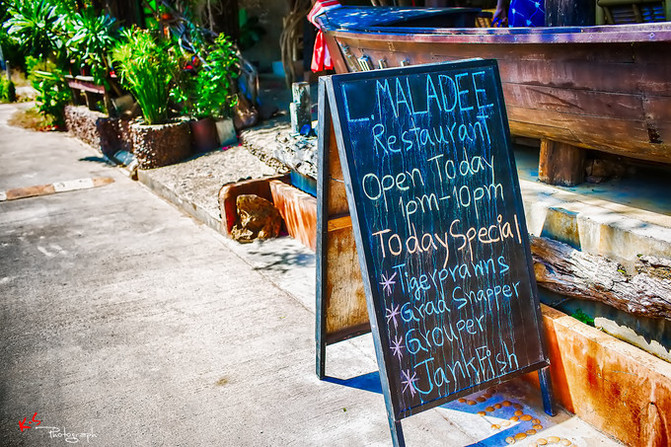 L. MALADEE
Restaurant
Open Today
1pm-10pm
Today Special
* Tigerprawns
* Grad Snapper
* Grouper
* Jankfish
KS
Photograph